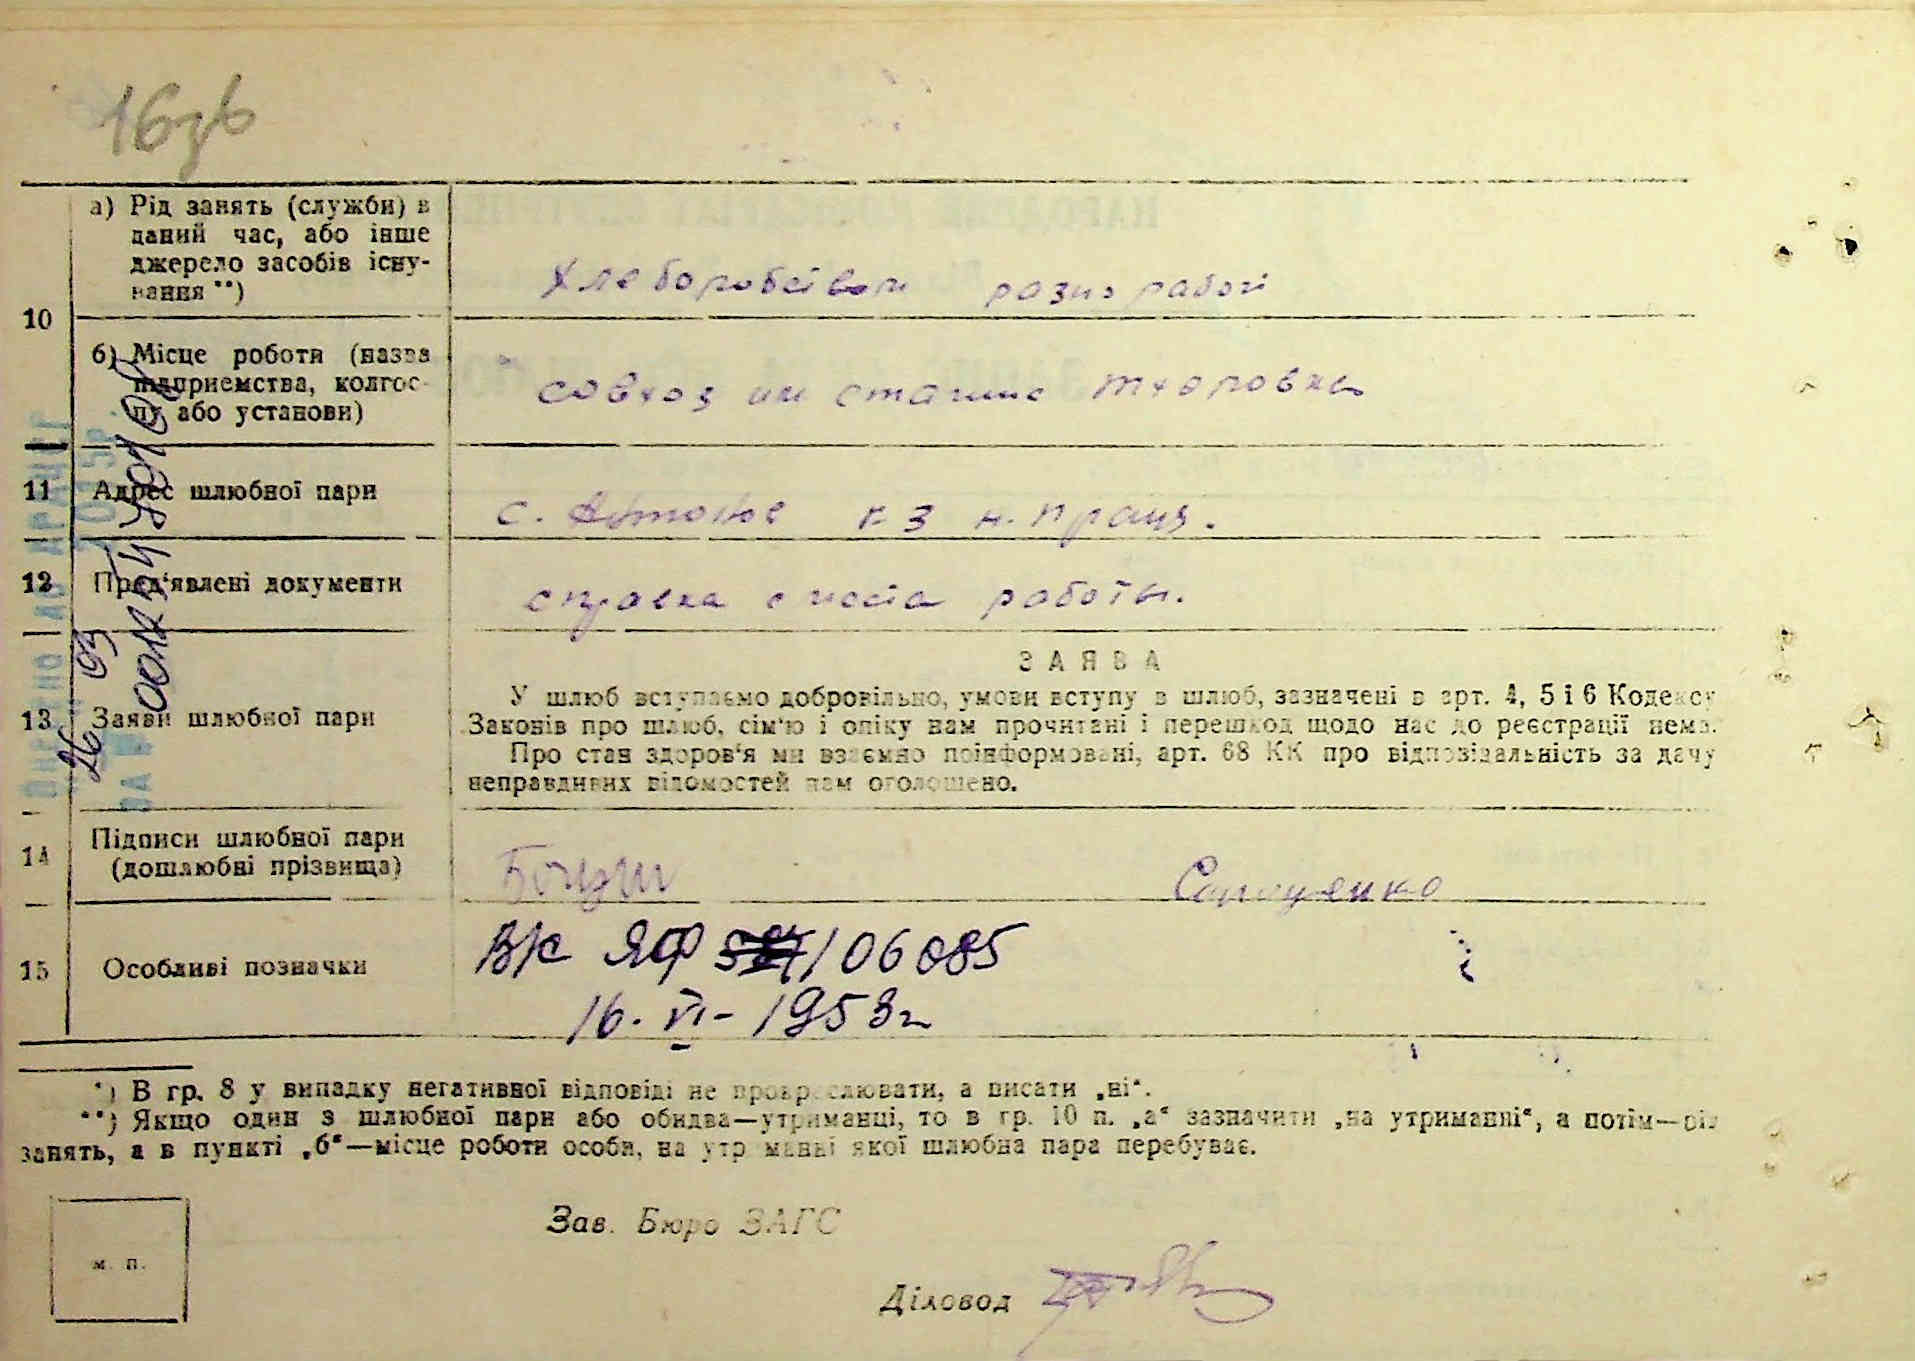 16зв
10
а) Рід занять (служби) в
даний час, або інше
джерело засобів існу-
вання **)
Хлеборобством разно рабочі
б) Місце роботи (назва
підприємства, колгос-
пу або установи)
совхоз им сталине
11
Адрес шлюбної пари
с. к з н. праця.
12
Пред'явлені документи
справка с места работы.
13
Заяви шлюбної пари
ЗАЯВА
У шлюб вступаємо добровільно, умови вступу в шлюб, зазначені в арт. 4, 5 і 6 Кодексу
Законів про шлюб, сім'ю і опіку нам прочитані і перешкод щодо нас до реєстрації нема.
Про стан здоров'я ми взаємно поінформовані, арт. 68 КК про відповідальність за дачу
неправдивих відомостей нам оголошено.
14
Підписи шлюбної пари
(дошлюбні прізвища)
15
Особливі позначки
ЯФ 106085
16. VI - 1953г
*) В гр. 8 у випадку негативної відповіді не прокреслювати, а писати „ні“.
**) Якщо один з шлюбної пари або обидва—утриманці, то в гр. 10 п. „а“ зазначити „на утриманні“, а потім—рід
занять, а в пункті „б“—місце роботи особи, на утр манні якої шлюбна пара перебуває.
м. п.
Зав. Бюро ЗАГС
Діловод